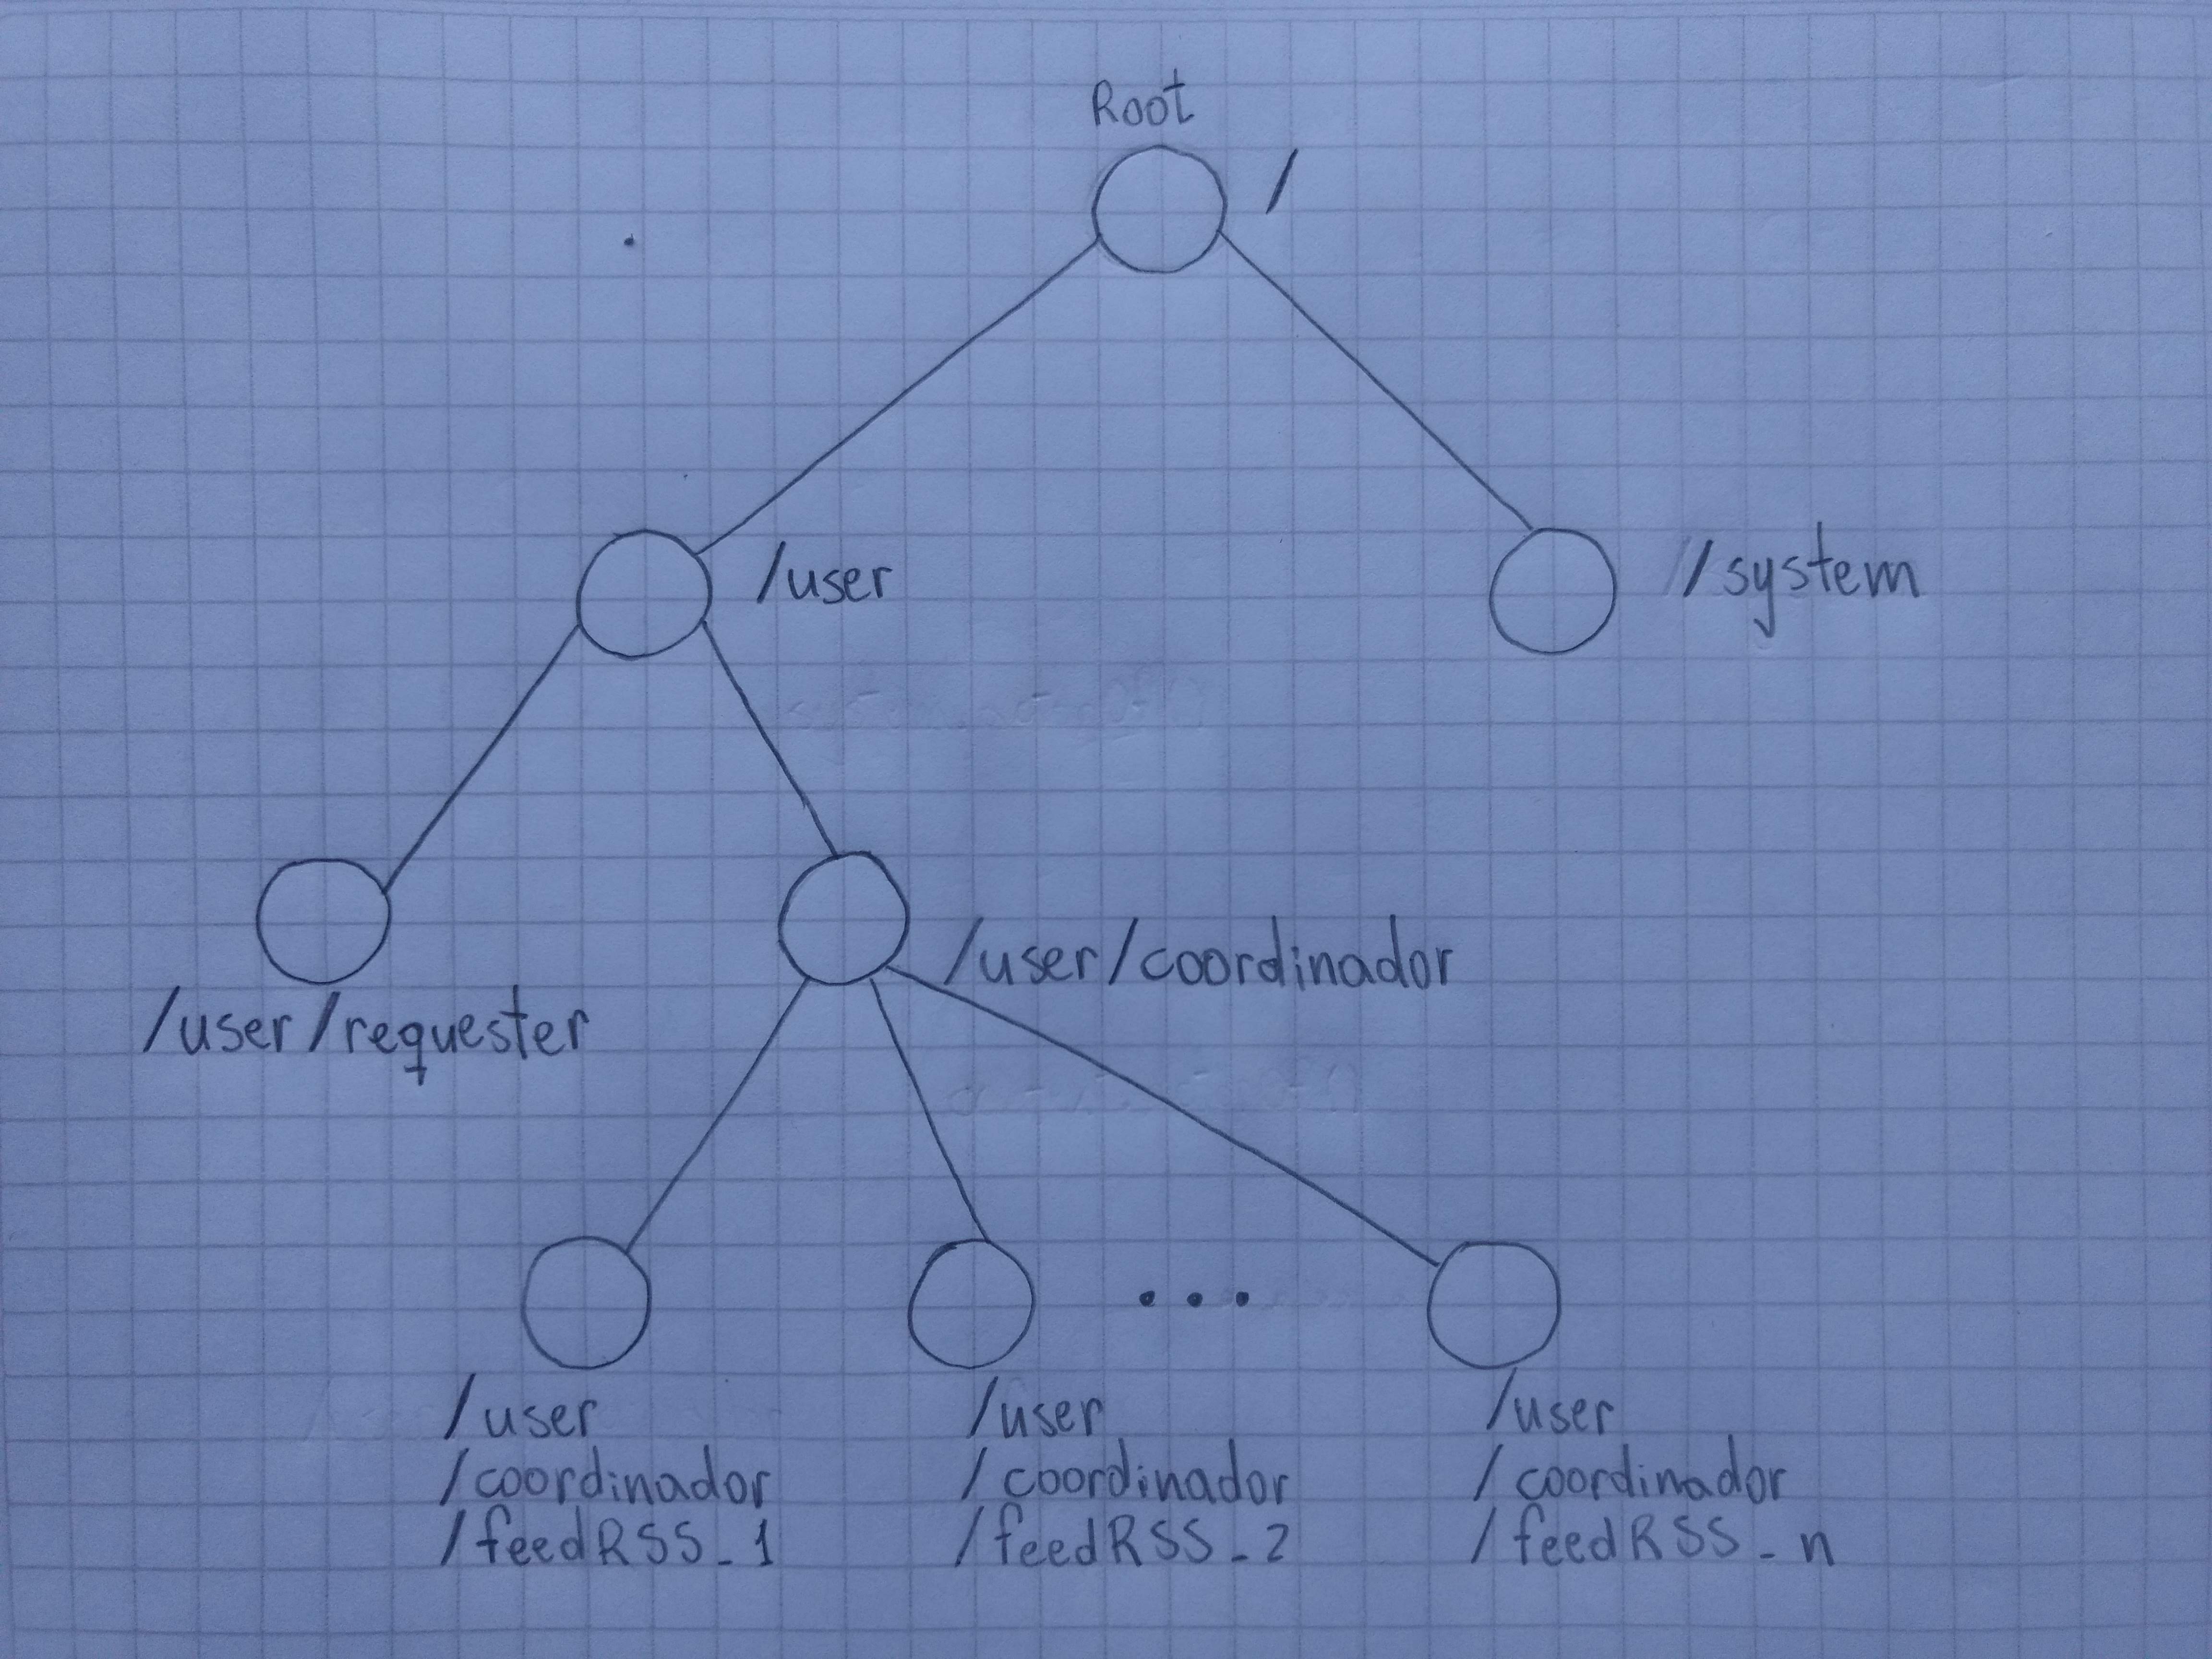 Root
/
/user
/system
/user/coordinador
/user/requester
/user
/coordinador
/feedRSS_1
/user
/coordinador
/feedRSS_2
...
/user
/coordinador
/feedRSS_n